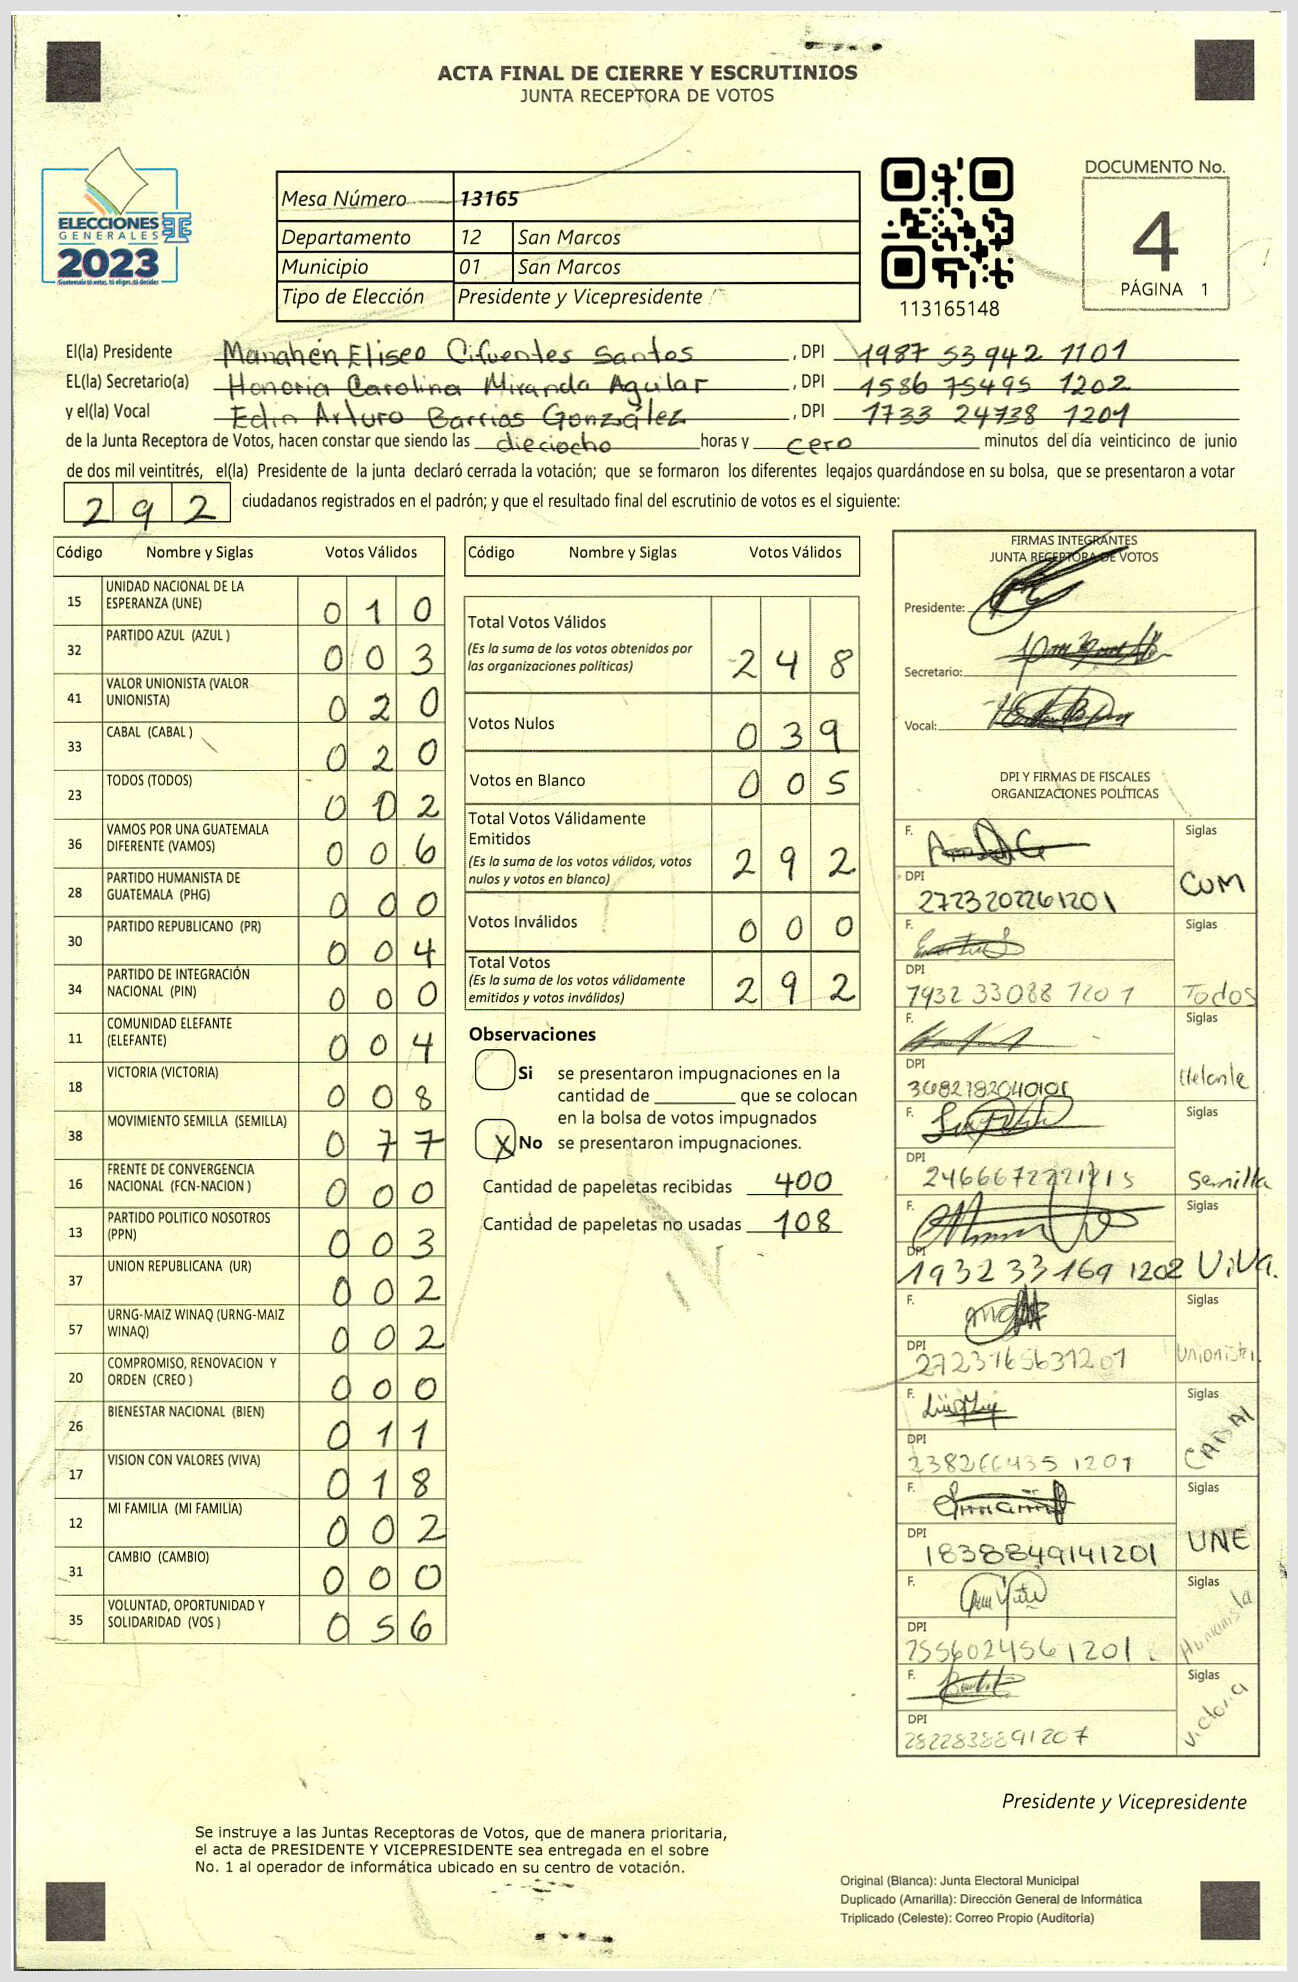 ACTA FINAL DE CIERRE Y ESCRUTINIOS
JUNTA RECEPTORA DE VOTOS
ELECCIONES
GENERALES
2023
Guatemala tú votas, tú eliges, tú decides
Mesa Número 13165
Departamento 12 San Marcos
Municipio 01 San Marcos
Tipo de Elección Presidente y Vicepresidente
113165148
DOCUMENTO No.
4
PÁGINA 1
El(la) Presidente Manahén Eliseo Cifuentes Santos, DPI 1987 53942 1101
EL(la) Secretario(a) Honoria Carolina Miranda Aguilar, DPI 1586 75495 1202
y el(la) Vocal Edin Arturo Barrios González, DPI 1733 24738 1201
de la Junta Receptora de Votos, hacen constar que siendo las dieciocho horas y cero minutos del día veinticinco de junio
de dos mil veintitrés, el(la) Presidente de la junta declaró cerrada la votación; que se formaron los diferentes legajos quardándose en su bolsa, que se presentaron a votar
292 ciudadanos registrados en el padrón; y que el resultado final del escrutinio de votos es el siguiente:
Código Nombre y Siglas Votos Válidos
15 UNIDAD NACIONAL DE LA ESPERANZA (UNE) 010
32 PARTIDO AZUL (AZUL ) 003
41 VALOR UNIONISTA (VALOR UNIONISTA) 020
33 CABAL (CABAL ) 020
23 TODOS (TODOS) 002
36 VAMOS POR UNA GUATEMALA DIFERENTE (VAMOS) 006
28 PARTIDO HUMANISTA DE GUATEMALA (PHG) 000
30 PARTIDO REPUBLICANO (PR) 004
34 PARTIDO DE INTEGRACIÓN NACIONAL (PIN) 000
11 COMUNIDAD ELEFANTE (ELEFANTE) 004
18 VICTORIA (VICTORIA) 008
38 MOVIMIENTO SEMILLA (SEMILLA) 077
16 FRENTE DE CONVERGENCIA NACIONAL (FCN-NACION ) 000
13 PARTIDO POLITICO NOSOTROS (PPN) 003
37 UNION REPUBLICANA (UR) 002
57 URNG-MAIZ WINAQ (URNG-MAIZ WINAQ) 002
20 COMPROMISO, RENOVACION Y ORDEN (CREO ) 000
26 BIENESTAR NACIONAL (BIEN) 011
17 VISION CON VALORES (VIVA) 018
12 MI FAMILIA (MI FAMILIA) 002
31 CAMBIO (CAMBIO) 000
35 VOLUNTAD, OPORTUNIDAD Y SOLIDARIDAD (VOS ) 056
Código Nombre y Siglas Votos Válidos
Total Votos Válidos 248
(Es la suma de los votos obtenidos por las organizaciones políticas)
Votos Nulos 039
Votos en Blanco 005
Total Votos Válidamente Emitidos 292
(Es la suma de los votos válidos, votos nulos y votos en blanco)
Votos Inválidos 000
Total Votos 292
(Es la suma de los votos válidamente emitidos y votos inválidos)
Observaciones
Si se presentaron impugnaciones en la
cantidad de ________ que se colocan
en la bolsa de votos impugnados
X No se presentaron impugnaciones.
Cantidad de papeletas recibidas 400
Cantidad de papeletas no usadas 108
FIRMAS INTEGRANTES
JUNTA RECEPTORA DE VOTOS
Presidente:
Secretario:
Vocal:
DPI Y FIRMAS DE FISCALES
ORGANIZACIONES POLÍTICAS
F. Siglas
DPI 2723202261201 CUM
F. Siglas
DPI 1932 33088 1201 Todos
F. Siglas
DPI
F. Siglas
DPI Semilla
F. Siglas
DPI 1932 33169 1202 ViVa.
F. Siglas
DPI 2723165631201 Unionista
F. Siglas
DPI 238266435 1201 CABAL
F. Siglas
DPI 1838849141201 UNE
F. Siglas
DPI 2556024561201 Humanista
F. Siglas
DPI 2822838891207 Victoria
Presidente y Vicepresidente
Se instruye a las Juntas Receptoras de Votos, que de manera prioritaria,
el acta de PRESIDENTE Y VICEPRESIDENTE sea entregada en el sobre
No. 1 al operador de informática ubicado en su centro de votación.
Original (Blanca): Junta Electoral Municipal
Duplicado (Amarilla): Dirección General de Informática
Triplicado (Celeste): Correo Propio (Auditoría)